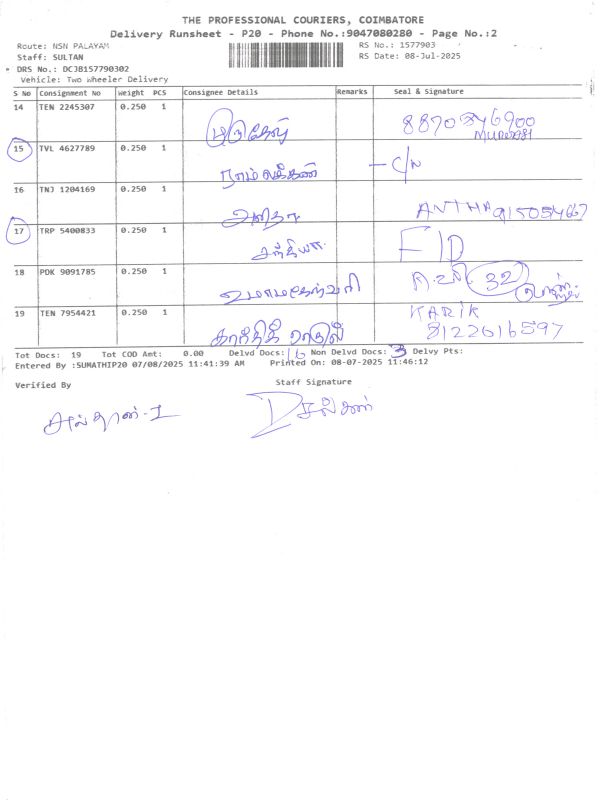 THE PROFESSIONAL COURIERS, COIMBATORE
Delivery Runsheet - P20 - Phone No.:9047080280 - Page No.:2
Route: NSN PALAYAM RS No.: 1577903
Staff: SULTAN RS Date: 08-Jul-2025
DRS No.: DCJB157790302
Vehicle: Two Wheeler Delivery
S No Consignment No Weight PCS Consignee Details Remarks Seal & Signature
14 TEN 2245307 0.250 1
15 TVL 4627789 0.250 1 ராம் லக்கன் - C/N
16 TNJ 1204169 0.250 1 அனிதா
17 TRP 5400833 0.250 1 சந்தியா F/D
18 PDK 9091785 0.250 1 உமாமகேஸ்வரி 32
19 TEN 7954421 0.250 1 கார்த்திக் ராகுல் KARIK
8122616597
Tot Docs: 19 Tot COD Amt: 0.00 Delvd Docs: 16 Non Delvd Docs: 3 Delvy Pts:
Entered By :SUMATHIP20 07/08/2025 11:41:39 AM Printed On: 08-07-2025 11:46:12
Verified By Staff Signature